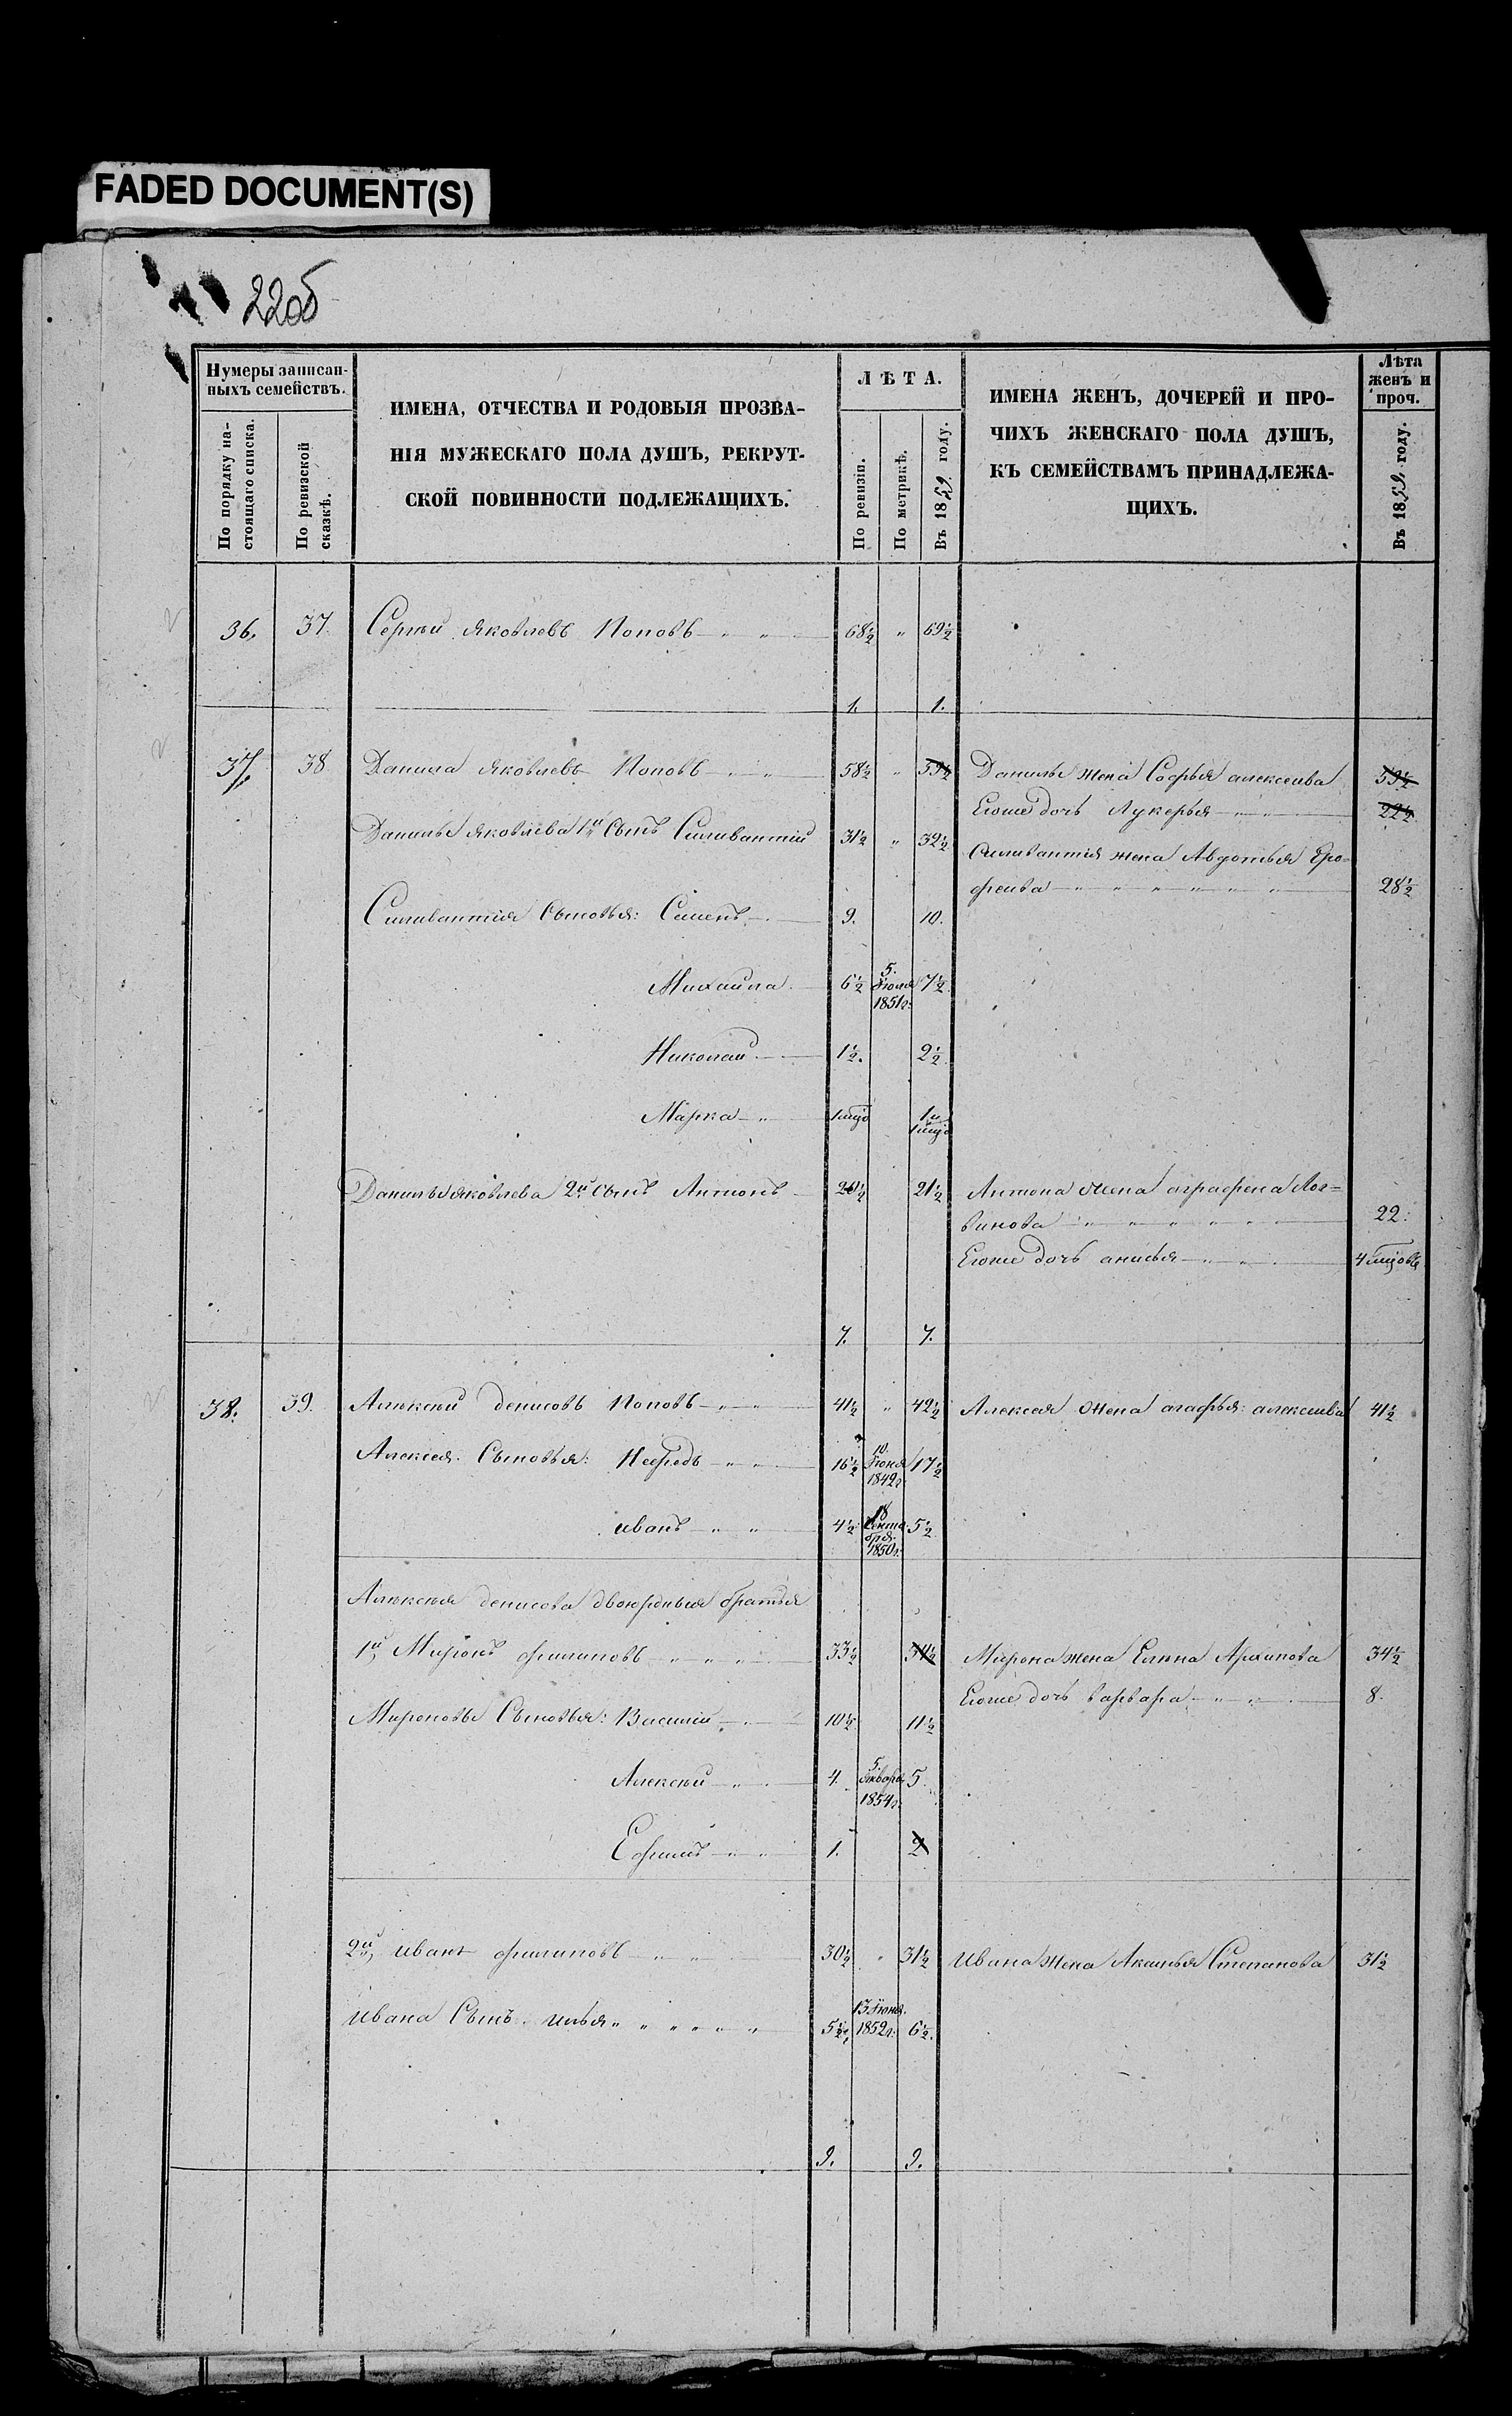 FADED DOCUMENT(S)
22об
Нумеры записан-
ныхъ семействъ.
По порядку на-
стоящаго списка.
По ревизской
сказкѣ.
ИМЕНА, ОТЧЕСТВА И РОДОВЫЯ ПРОЗВА-
НІЯ МУЖЕСКАГО ПОЛА ДУШЪ, РЕКРУТ-
СКОЙ ПОВИННОСТИ ПОДЛЕЖАЩИХЪ.
ЛѢТА.
По ревизіи.
По метрикѣ.
Въ 1859 году.
ИМЕНА ЖЕНЪ, ДОЧЕРЕЙ И ПРО-
ЧИХЪ ЖЕНСКАГО ПОЛА ДУШЪ,
КЪ СЕМЕЙСТВАМЪ ПРИНАДЛЕЖА-
ЩИХЪ.
Лѣта
женъ и
проч.
Въ 1859 году.
36. 37. Сергѣй Яковлевъ Поповъ 68½ " 69½
1. 1.
37. 38 Данила Яковлевъ Поповъ 58½ " 59½ Данилы жена Софья алексеива 59½
Егоже дочь Лукерья 22½
Данилы Яковлева 1й Сынъ Силивантий 31½ " 32½
Силивантия жена Авдотья Еро=
феива 28½
Силивантия Сыновья: Сименъ 9. 10.
Михаила 6½ 5. Июля 1851г: 7½
Николай 1½. 2½
Марка 1мцъ 1 и 1мцъ
Данилы Яковлева 2й Сынъ Антонъ 20½ 21½ Антона жена аграфена Лог=
винова 22.
Егоже дочь анисья 4 мцовъ
7. 7.
38. 39. Алексѣй денисовъ Поповъ 41½ " 42½ Алексея жена агафья алексеива 41½
Алексея Сыновья: Нефедъ 16½ 10. Июня 1842г. 17½
иванъ 4½ 18 Сентября 1850г: 5½
Алексѣя денисова двоюрдныя братья
1й Миронъ филиповъ 33½ 34½ Мирона жена Елина Архипова 34½
Егоже дочь варвара 8.
Мироновы Сыновья: Василий 10½ 11½
Алексѣй 4. 5. Января 1854г. 5
Ефимъ 1. 2
2й иванъ филиповъ 30½ " 31½ Ивана жена Акулья Степанова 31½
ивана Сынъ илья 5½ 13 Июня 1852г: 6½.
9. 9.